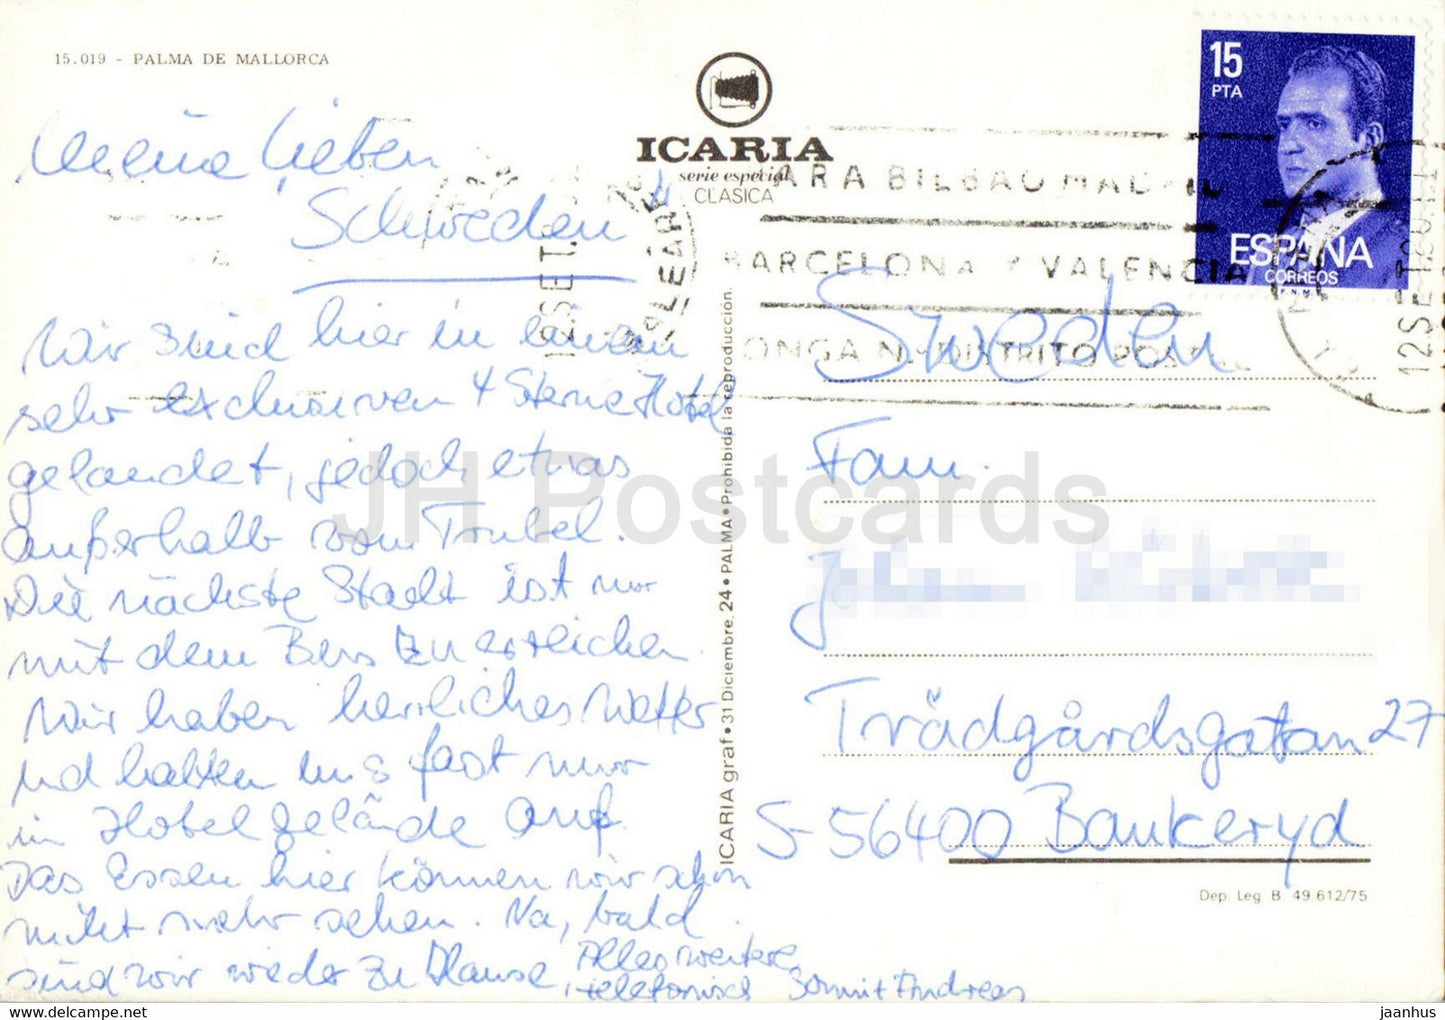 15.019 - PALMA DE MALLORCA
ICARIA
serie especial
CLASICA
15
PTA
ESPAÑA
CORREOS
F.N.M.T.
BILBAO MADRID
BARCELONA Y VALENCIA
PONGA N.º DISTRITO POSTAL
12 SET.
BALEARES
12 SET
Meine Lieben
Schweden
Wir sind hier in einem
sehr exclusiven 4 Sterne Hotel
gelandet, jedoch etwas
außerhalb vom Trubel.
Die nächste Stadt ist nur
mit dem Bus zu erreichen.
Wir haben herrliches Wetter
und halten uns fast nur
im Hotelgelände auf.
Das Essen hier können wir schon
nicht mehr sehen. Na, bald
sind wir wieder zu Hause,
Alles weitere
telefonisch
Sweden
Fam.
Trädgårdsgatan 27
S-56400 Bankeryd
ICARIA graf • 31 Diciembre, 24 • PALMA • Prohibida la reproducción.
Dep. Leg. B. 49.612/75
JH Postcards
www.hippostcard.com
jaanhus